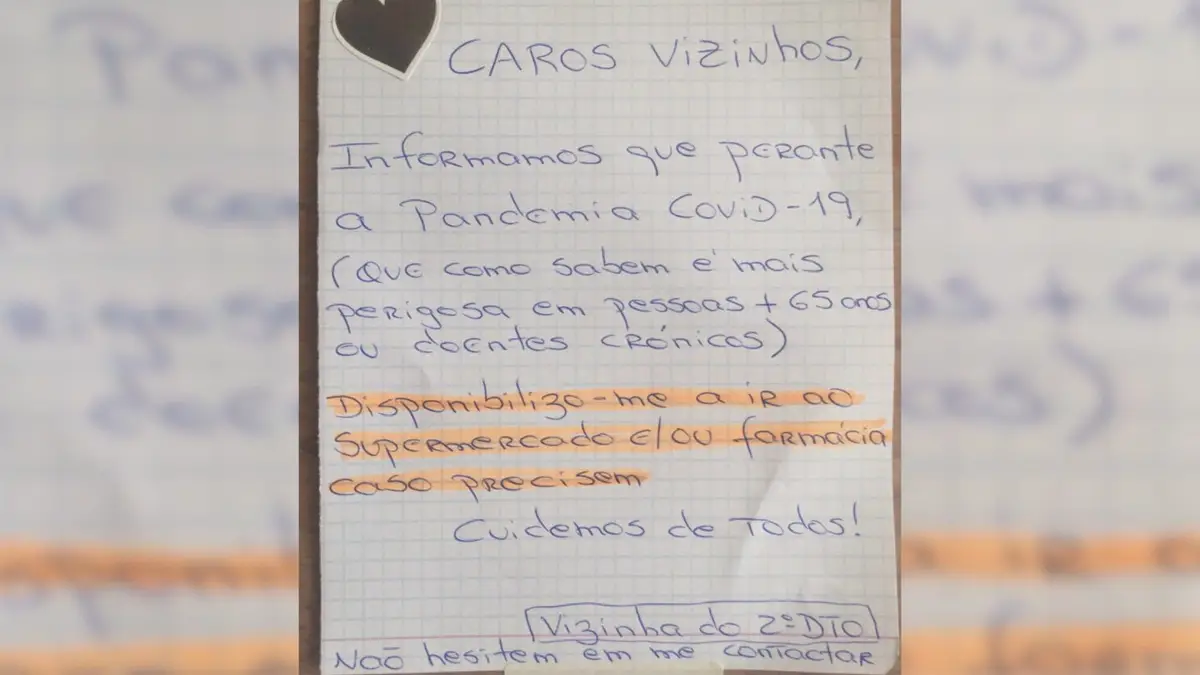 CAROS VIZINHOS,
Informamos que perante
a Pandemia COVID-19,
(que como sabem é mais
perigosa em pessoas + 65 anos
ou doentes crónicos)
Disponibilizo-me a ir ao
supermercado e/ou farmácia
caso precisem
Cuidemos de Todos!
Vizinha do 2º DTO
Não hesitem em me contactar